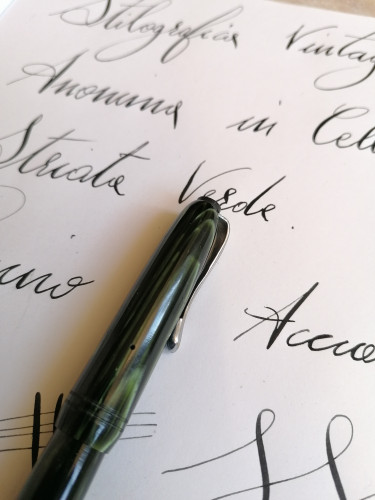 Stilografica Vintag
Anonima in Cell
Striata Verde.
Accia